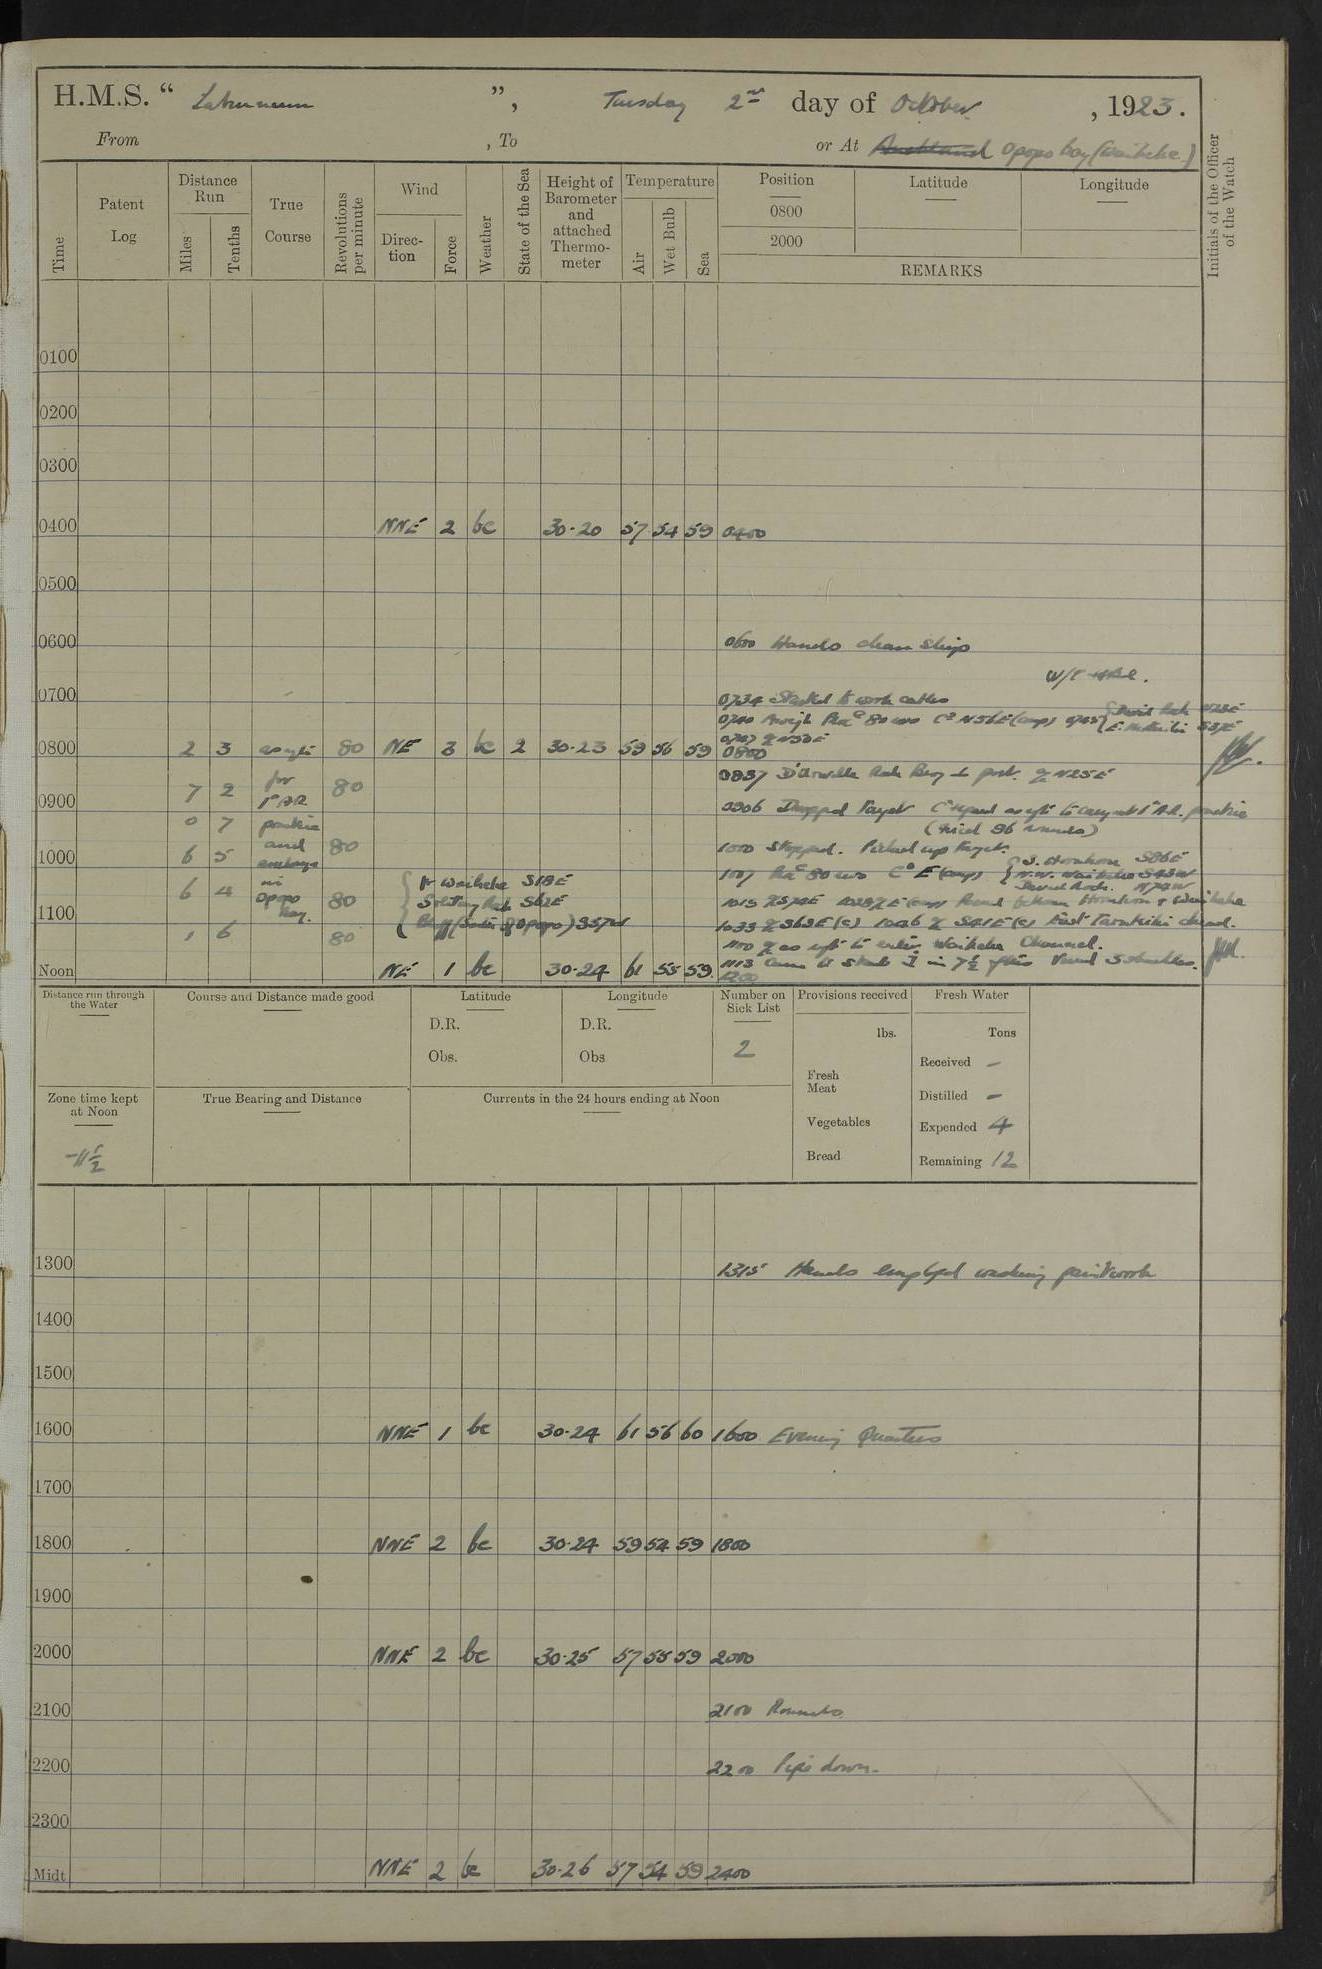 H.M.S. “ Laburnum ”, Tuesday 2nd day of October, 1923.
From , To or At Auckland Opopo bay (Waiheke)
Time
Patent Log
Distance Run
Miles
Tenths
True Course
Revolutions per minute
Wind
Direction
Force
Weather
State of the Sea
Height of Barometer and attached Thermometer
Temperature
Air
Wet Bulb
Sea
Position
0800
2000
Latitude
Longitude
REMARKS
Initials of the Officer of the Watch
0100
0200
0300
0400 NNE 2 bc 30·20 57 54 59 0400
0500
0600 0600 Hands clean ship
W/T
0700 0734 Started to work cables
0740 Aweigh 80 revs N56E (comp) 0745
E. S37E
0800 2 3 as reqte 80 NE 3 bc 2 30·23 59 56 59 0800
0837 D'Urville Rock Beacon to port. N25E
0900 7 2 for 80
0906 Dropped Target as reqte to carry out 1" A.R. practice
0 7 practice
(fired 96 rounds)
1000 6 5 and anchorage 80 1000 Stopped. Picked up target.
S. S86E
1007 80 revs Co E (comp) N.W. Waiheke S43W
N74W
1100 6 4 in Opopo bay. 80 Pt Waiheke S18E
S62E
S57W
1015 S74E 1028 E (comp) Passed between & Waiheke
1033 S63E (c) 1046 S41E (c) East Tarakihi abeam.
1 6 80 1100 as reqte to enter Waiheke Channel.
Noon NE 1 bc 30·24 61 55 59 1113 Came to in 7½ fms
1200
Distance run through the Water
Course and Distance made good
Latitude
D.R.
Obs.
Longitude
D.R.
Obs
Number on Sick List
2
Provisions received
lbs.
Fresh Meat
Vegetables
Bread
Fresh Water
Tons
Received —
Distilled —
Expended 4
Remaining 12
Zone time kept at Noon
-11½
True Bearing and Distance
Currents in the 24 hours ending at Noon
1300 1315 Hands employed washing paintwork
1400
1500
1600 NNE 1 bc 30·24 61 56 60 1600 Evening Quarters
1700
1800 NNE 2 bc 30·24 59 54 59 1800
1900
2000 NNE 2 bc 30·25 57 55 59 2000
2100 2100 Rounds.
2200 2200 Pipe down.
2300
Midt NNE 2 bc 30·26 57 54 59 2400